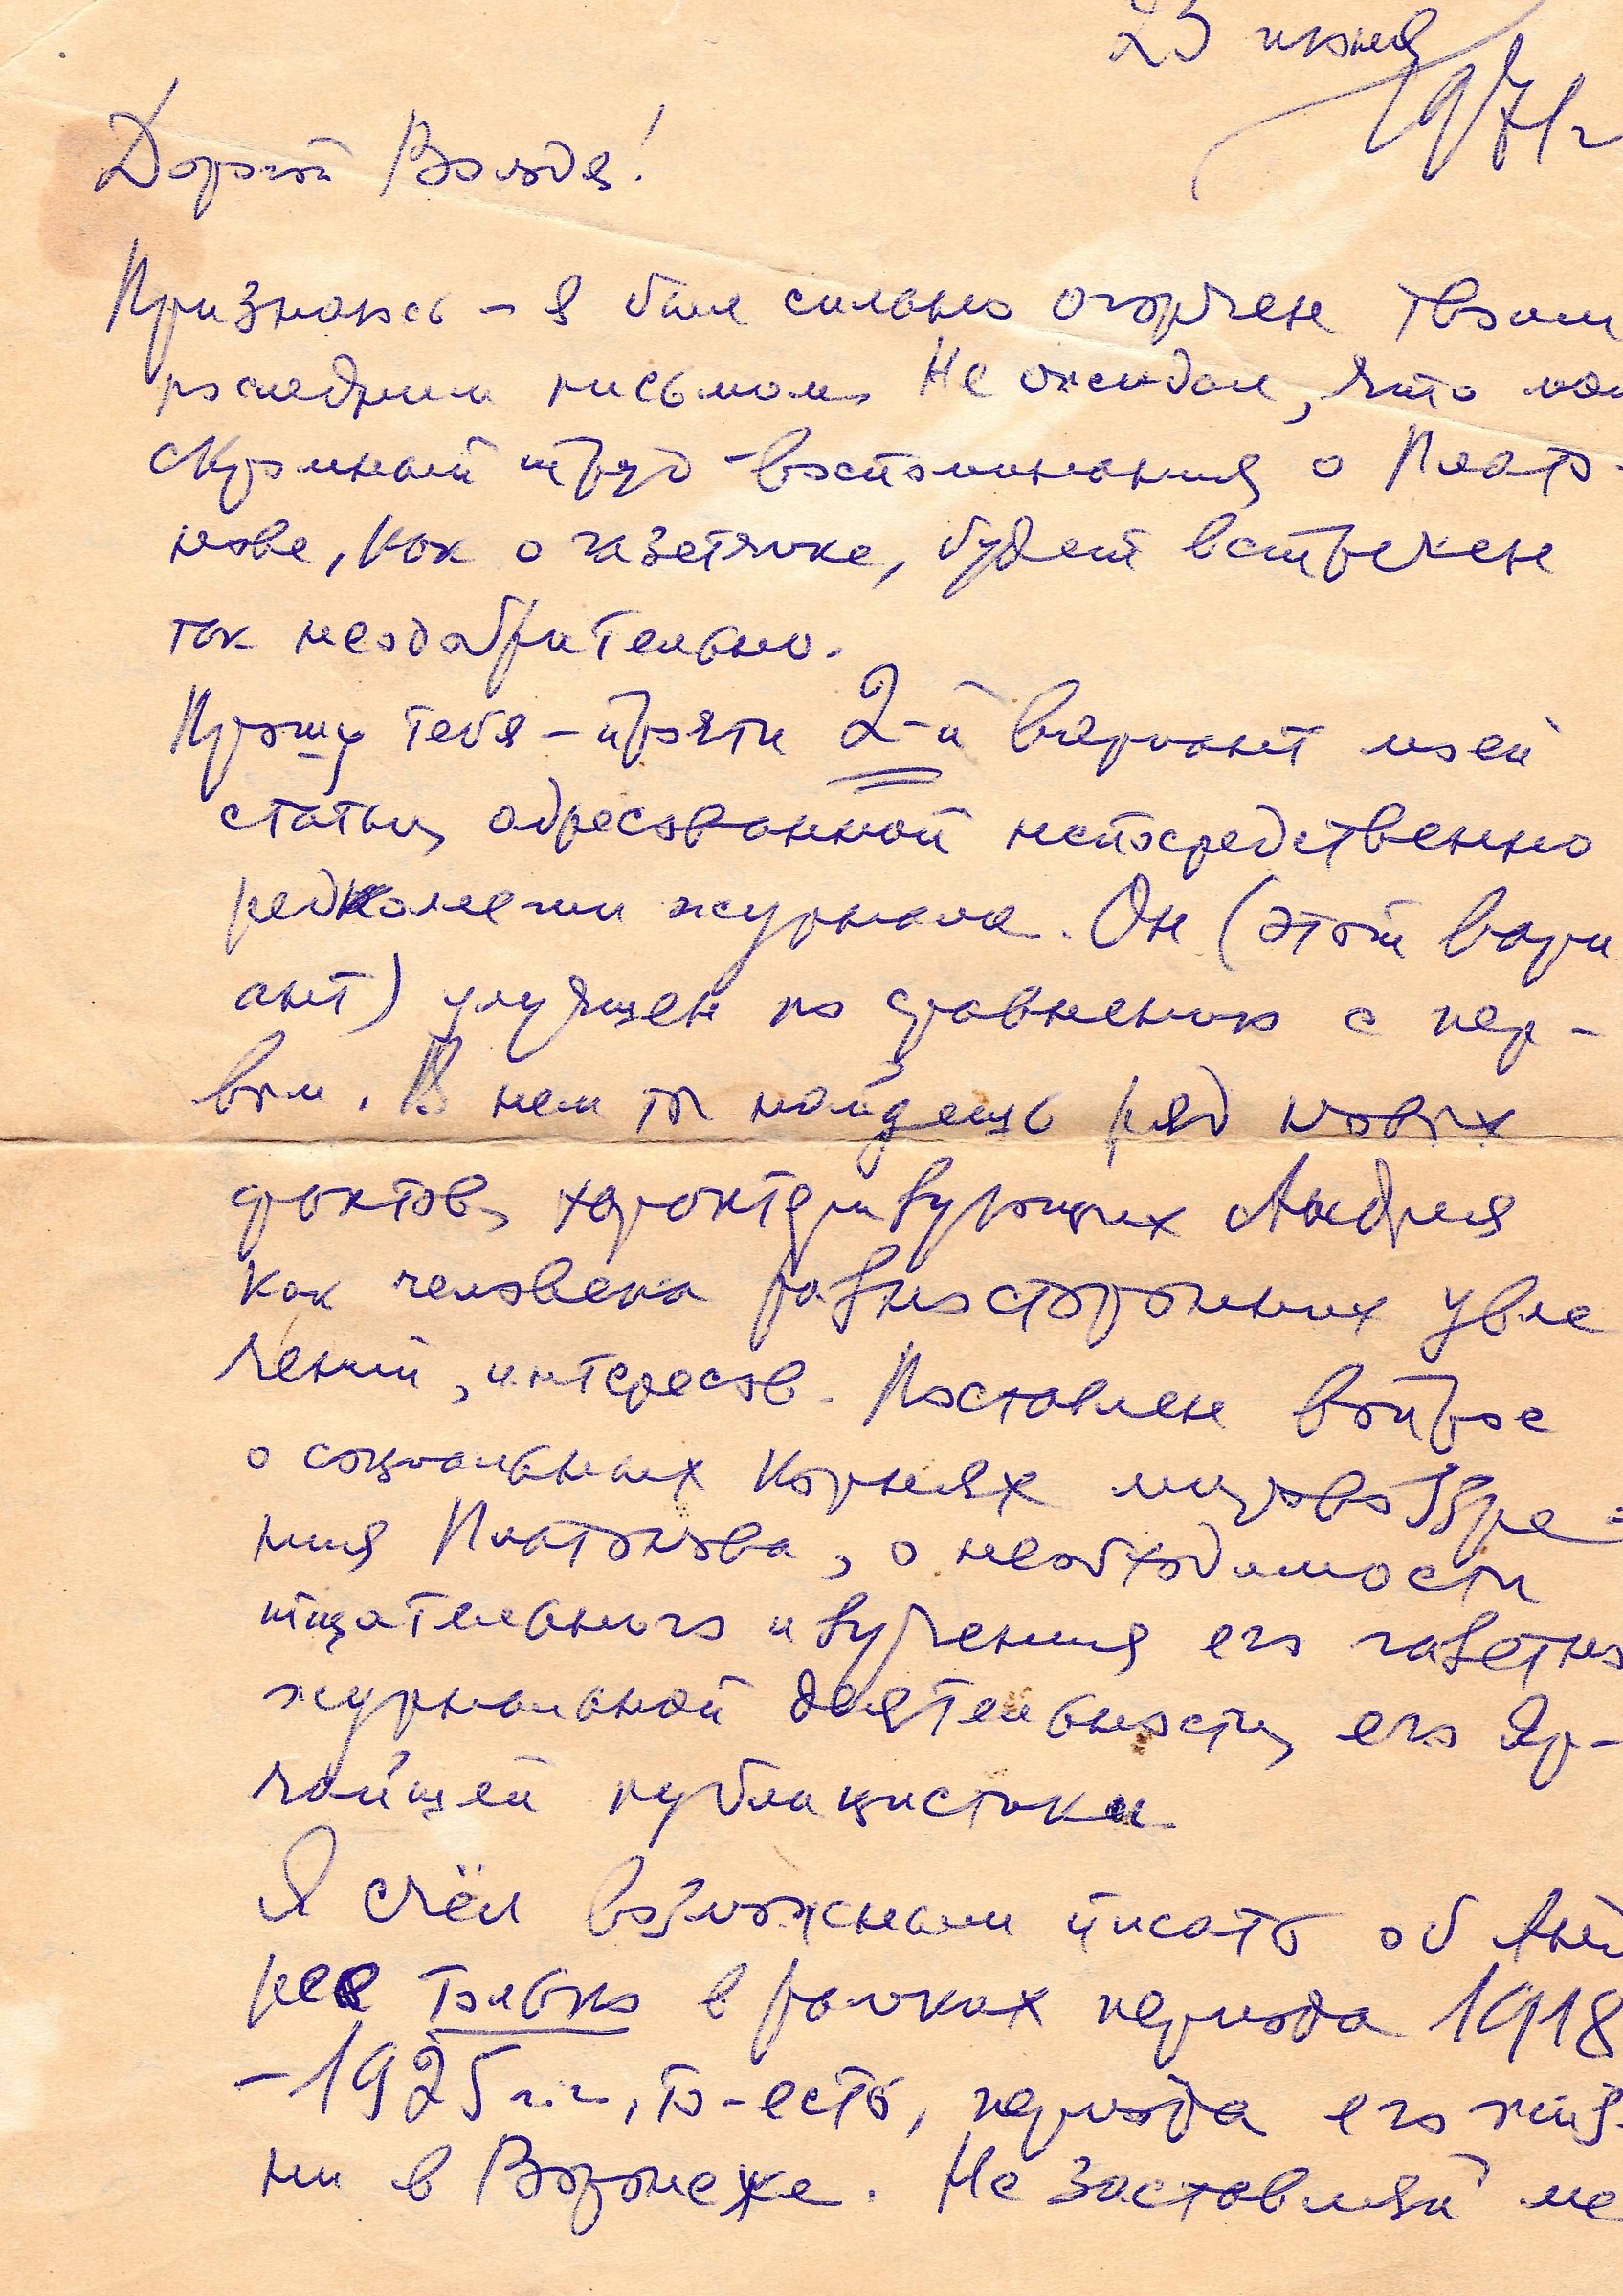 23 июня
1971 г
Дорогой Володя!
Признаюсь – я был сильно огорчен твоим
последним письмом. Не ожидал, что мой
скромный труд – воспоминания о Плато-
нове, как о газетчике, будет встречен
так неодобрительно.
Прошу тебя – прочти 2-й вариант моей
статьи, адресованной непосредственно
редколлегии журнала. Он (этот вари
ант) улучшен по сравнению с пер-
вым. В нем ты найдешь ряд новых
фактов, характеризующих Андрея
как человека разносторонних увле
чений, интересов. Поставлен вопрос
о социальных корнях мировоззре=
ния Платонова, о необходимости
тщательного изучения его газетно
журнальной деятельности, его яр-
чайшей публицистики.
Я счёл возможным писать об Анд
рее только в рамках периода 1918
–1925 г.г., то-есть, периода его жиз-
ни в Воронеже. Не заставляй ме